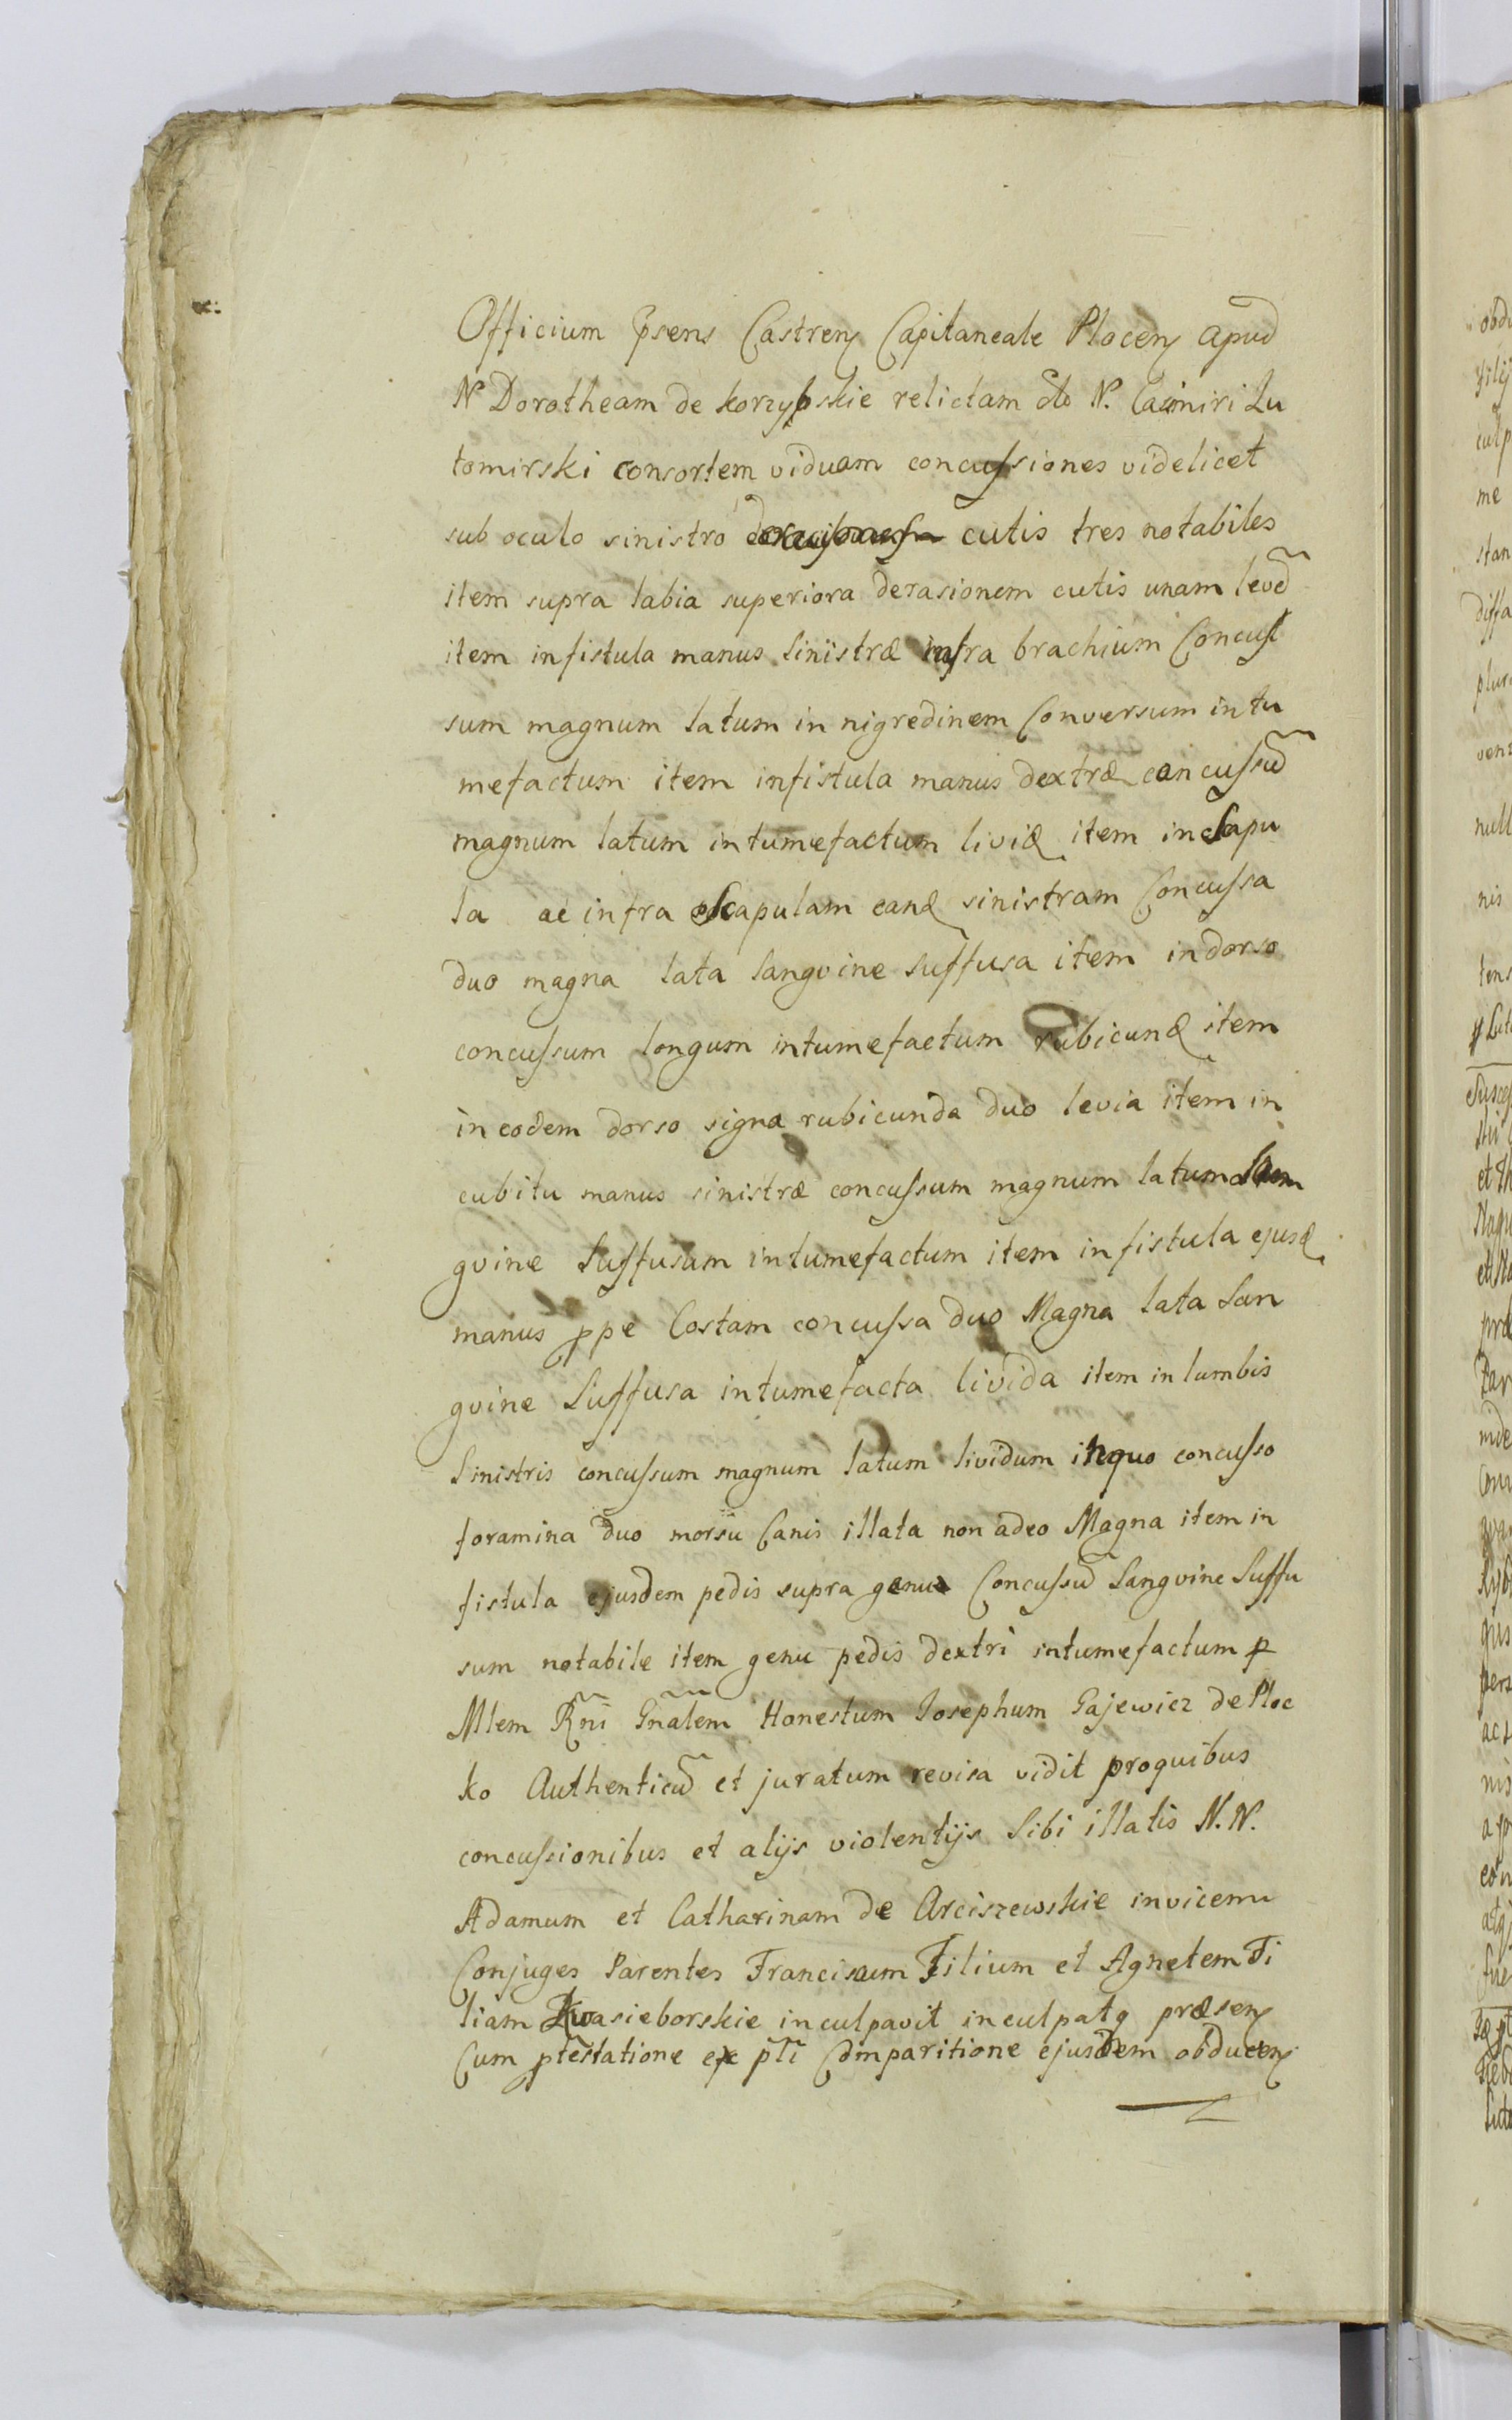 Officium Psens Castren Capitaneale Plocen apud
N Dorotheam de Korzybskie relictam olo N. Casimiri Lu
tomirski consortem viduam concussiones videlicet
sub oculo sinistro cutis tres notabiles
item supra labia superiora derasionem cutis unam leve
item in fistula manus sinistræ infra brachium Concus
sum magnum latum in nigredinem Conversum intu
mefactum item in fistula manus dextræ concussũ
magnum latum intumefactum livid item in scapu
la ac infra scapulam eand sinistram Concussa
duo magna lata sangvine suffusa item in dorso
concussum longum intumefactum rubicund item
in eodem dorso signa rubicunda duo levia item in
cubitu manus sinistræ concussum magnum latum san
gvine suffusum intumefactum item in fistula ejusd
manus ppe Costam concussa duo Magna lata san
gvine suffusa intumefacta livida item in lumbis
sinistris concussum magnum latum lividum in quo concusso
foramina duo morsu Canis illata non adeo Magna item in
fistula ejusdem pedis supra genua Concussũ sangvine suffu
sum notabile item genu pedis dextri intumefactum p
Mlem Rñi Gñalem Honestum Josephum Gajewicz de Ploc
ko Authenticũ et juratum revisa vidit pro quibus
concussionibus et alijs violentijs sibi illatis N. N.
Adamum et Catharinam de Arciszewskie invicem
Conjuges Parentes Franciscum Filium et Agnetem Fi
liam Kwasieborskie inculpavit inculpatq præsen
Cum ptestatione ex pñti Comparitione ejusdem obducen